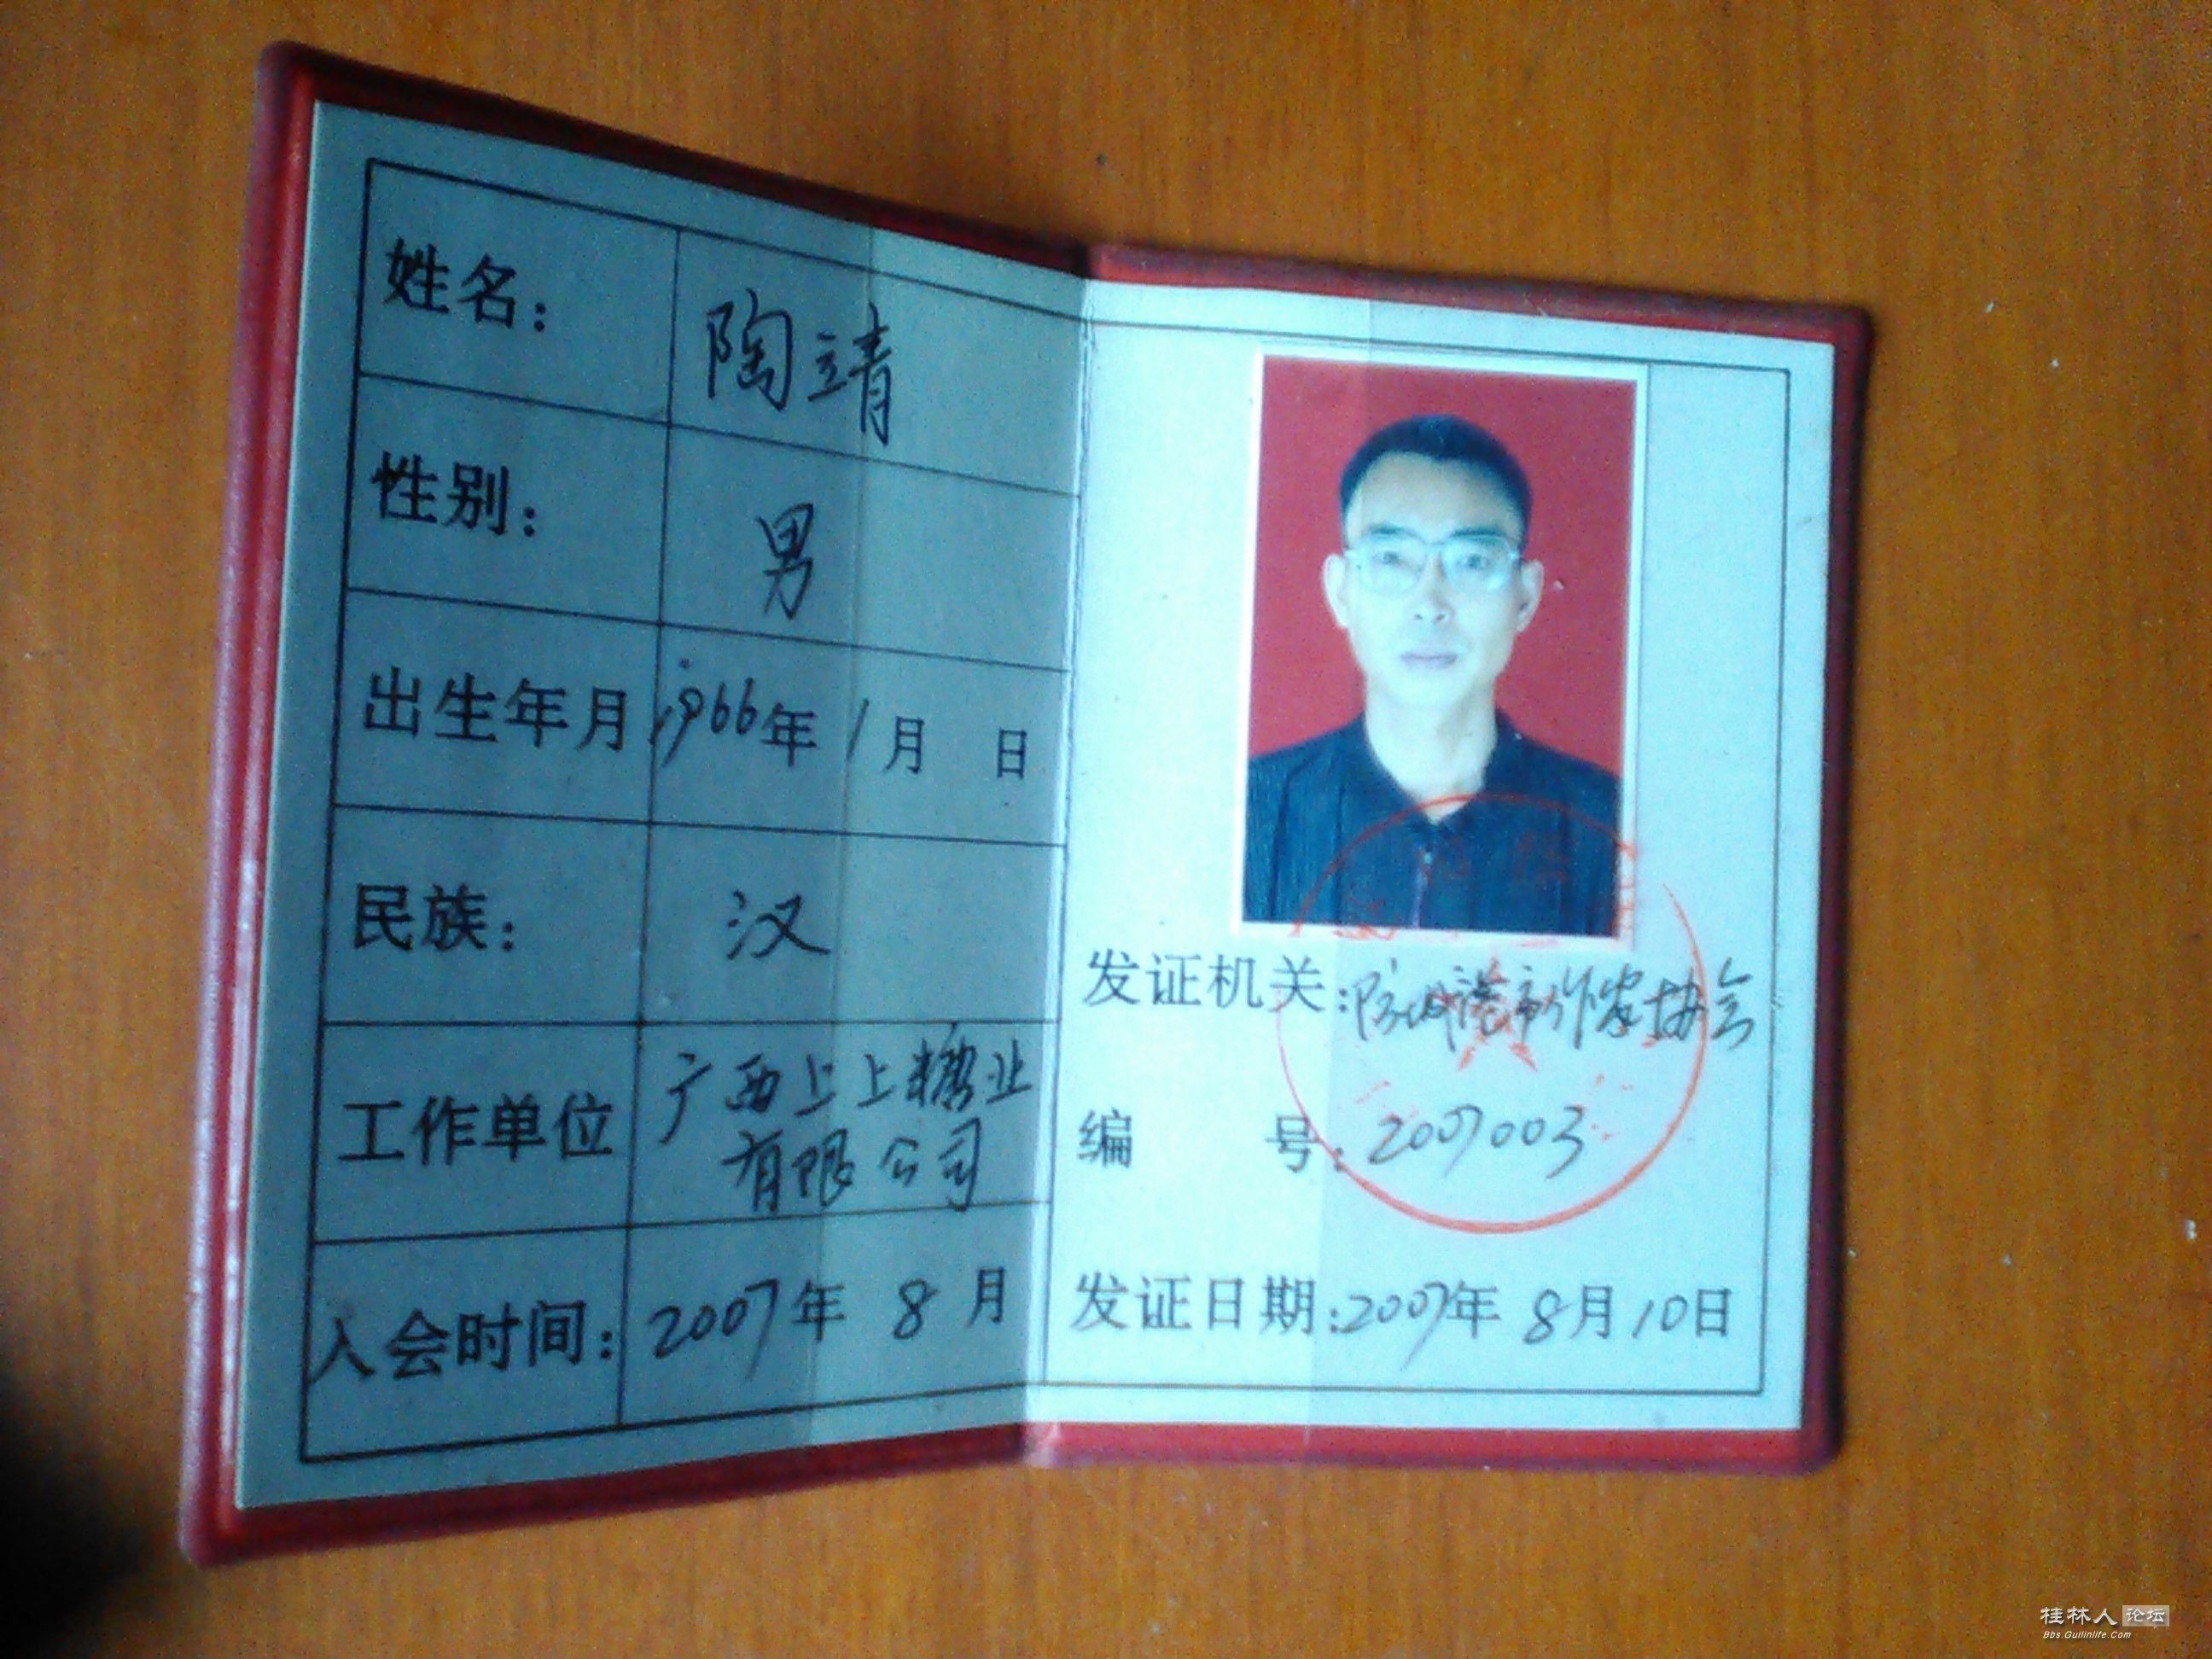 姓名: 陶靖
性别: 男
出生年月 1966年 1月 日
民族: 汉
工作单位 广西上上糖业
有限公司
入会时间: 2007年 8月
发证机关:防城港市作家协会
编 号:2007003
发证日期:2007年 8月10日
桂林人论坛
Bbs.Guilinlife.Com